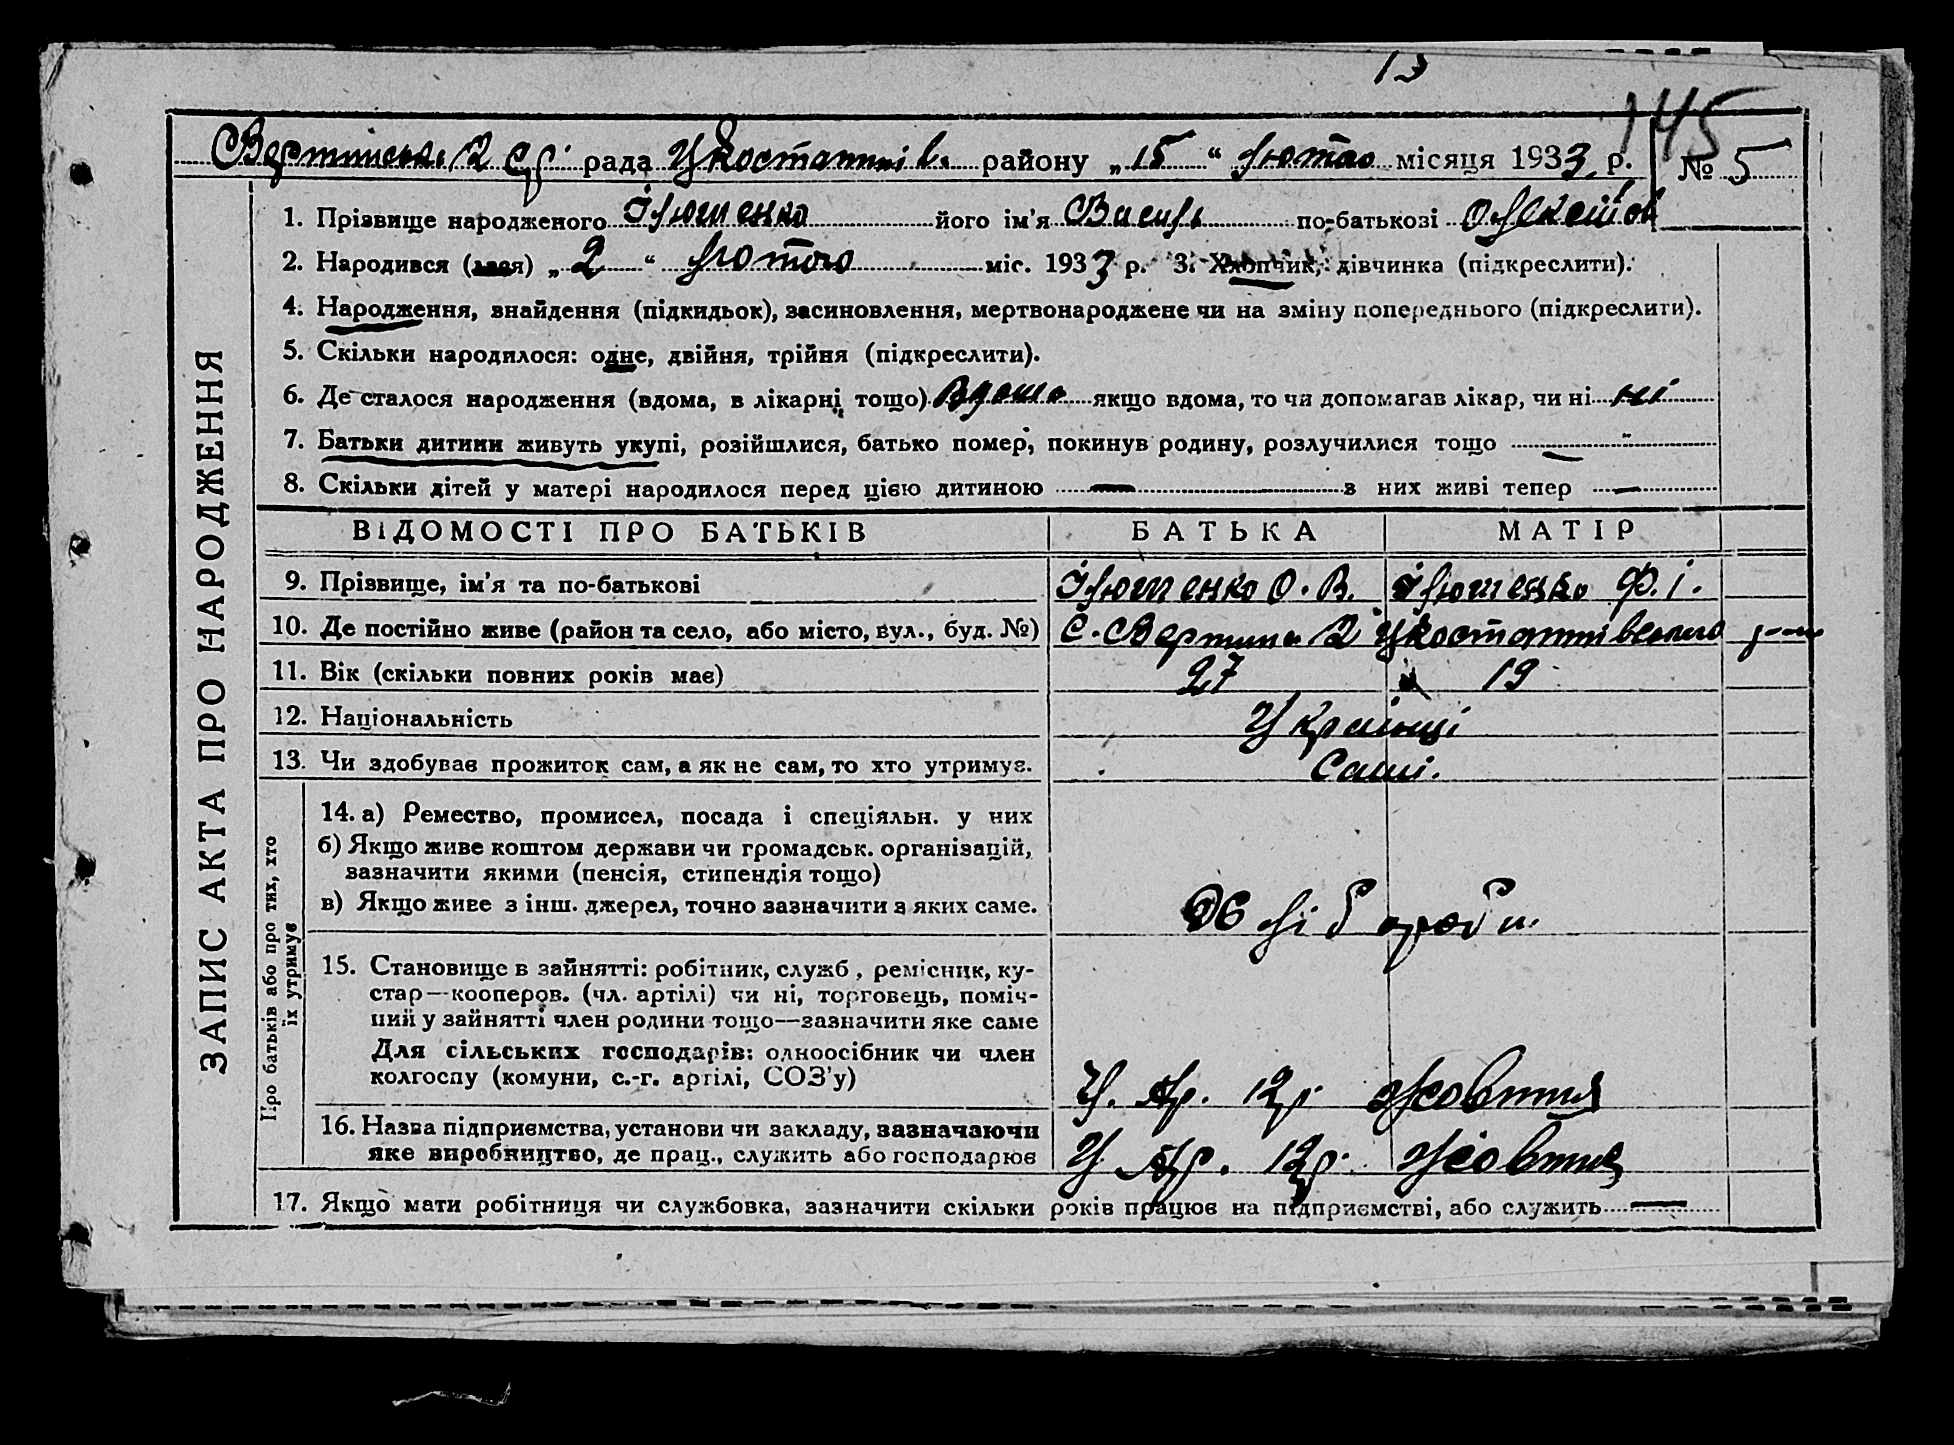 13
145
рада району „ 15 “ лютого місяця 1933 р. № 5
1. Прізвище народженого Ілюшенко його ім'я Василь по-батькові Олексійов
2. Народився (лася) „ 2 “ лютого міс. 1933 р. 3. Хлопчик, дівчинка (підкреслити).
4. Народження, знайдення (підкидьок), засиновлення, мертвонароджене чи на зміну попереднього (підкреслити).
5. Скільки народилося: одне, двійня, трійня (підкреслити).
6. Де сталося народження (вдома, в лікарні тощо) Вдома якщо вдома, то чи допомагав лікар, чи ні ні
7. Батьки дитини живуть укупі, розійшлися, батько помер, покинув родину, розлучилися тощо —
8. Скільки дітей у матері народилося перед цією дитиною — з них живі тепер —
ЗАПИС АКТА ПРО НАРОДЖЕННЯ
ВІДОМОСТІ ПРО БАТЬКІВ БАТЬКА МАТІР
9. Прізвище, ім'я та по-батькові Ілюшенко О. В. Ілюшенко Ф. І.
10. Де постійно живе (район та село, або місто, вул., буд. №) С.
11. Вік (скільки повних років має) 27 19
12. Національність Українці
13. Чи здобував прожиток сам, а як не сам, то хто утримує. Самі.
Про батьків або про тих, хто
їх утримує
14. а) Ремество, промисел, посада і спеціяльн. у них
б) Якщо живе коштом держави чи громадськ. організацій,
зазначити якими (пенсія, стипендія тощо)
в) Якщо живе з інш. джерел, точно зазначити з яких саме. Хлібороби
15. Становище в зайнятті: робітник, служб, ремісник, ку-
стар—кооперов. (чл. артілі) чи ні, торговець, поміч-
ний у зайнятті член родини тощо—зазначити яке саме
Для сільських господарів: одноосібник чи член
колгоспу (комуни, с.-г. артілі, СОЗ'у) Жовтня
16. Назва підприємства, установи чи закладу, зазначаючи
яке виробництво, де прац., служить або господарює Жовтня
17. Якщо мати робітниця чи службовка, зазначити скільки років працює на підприємстві, або служить —